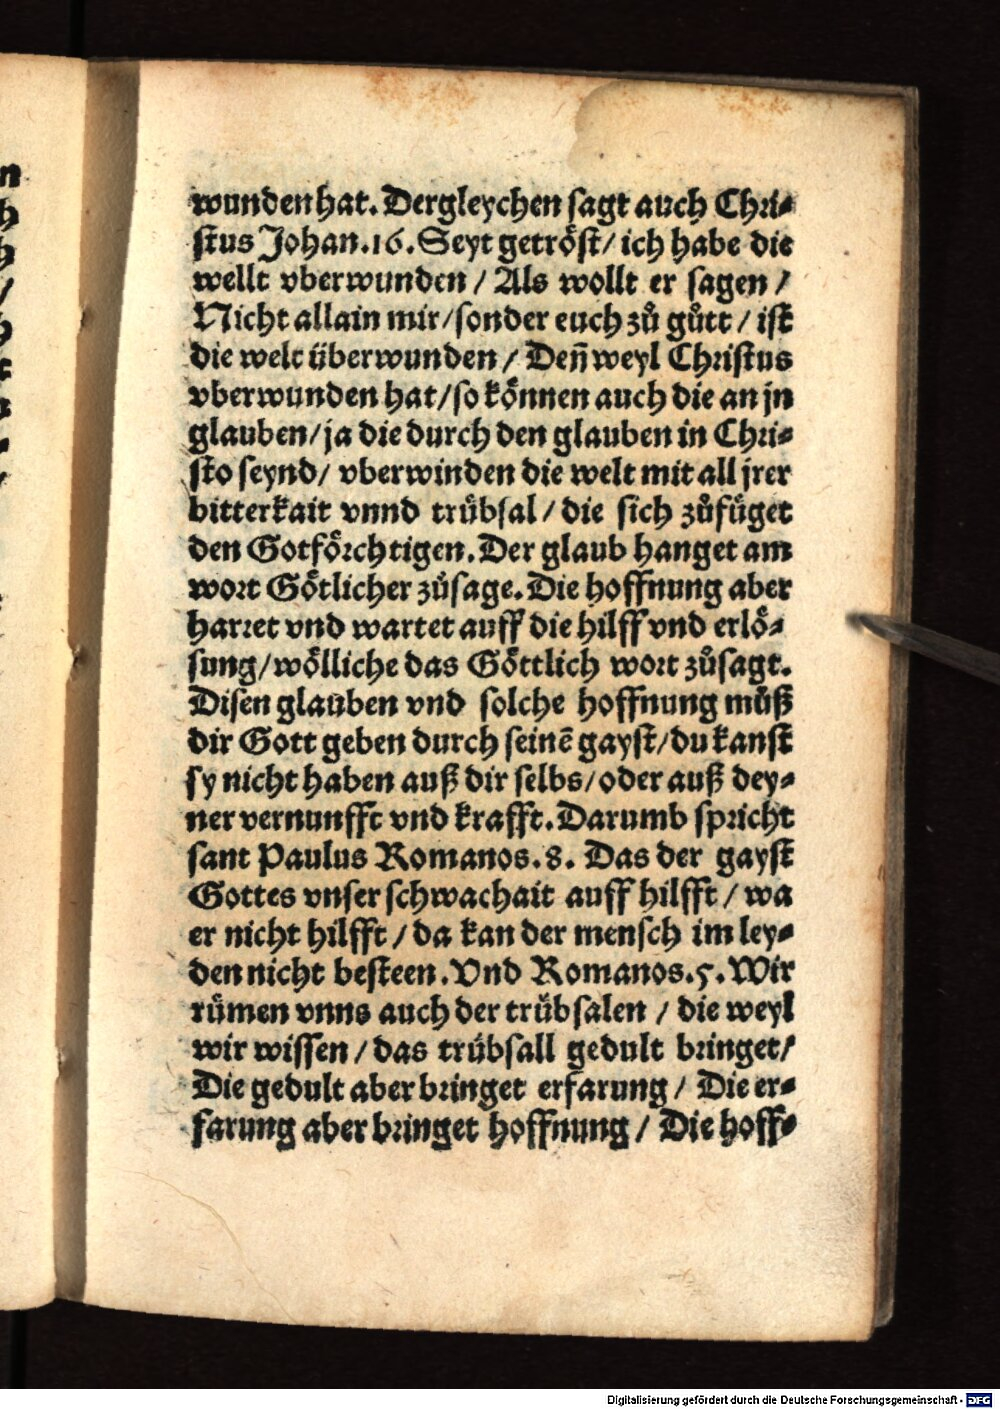 wunden hat. Dergleychen sagt auch Chri⸗
stus Johan.16. Seyt getröst/ ich habe die
wellt vberwunden / Als wollt er sagen /
Nicht allain mir/sonder euch zů gůtt / ist
die welt überwunden / Deñ weyl Christus
vberwunden hat/so können auch die an jn
glauben/ja die durch den glauben in Chri⸗
sto seynd/ vberwinden die welt mit all jrer
bitterkait vnnd trübsal / die sich zůfüget
den Gotförchtigen. Der glaub hanget am
wort Götlicher zůsage. Die hoffnung aber
harret vnd wartet auff die hilff vnd erlö⸗
sung/wölliche das Göttlich wort zůsagt.
Disen glauben vnd solche hoffnung můß
dir Gott geben durch seinē gayst/du kanst
sy nicht haben auß dir selbs/oder auß dey⸗
ner vernunfft vnd krafft. Darumb spricht
sant Paulus Romanos. 8. Das der gayst
Gottes vnser schwachait auff hilfft / wa
er nicht hilfft / da kan der mensch im ley⸗
den nicht besteen. Vnd Romanos.5. Wir
rümen vnns auch der trübsalen / die weyl
wir wissen / das trübsall gedult bringet/
Die gedult aber bringet erfarung / Die er⸗
farung aber bringet hoffnung / Die hoff⸗
Digitalisierung gefördert durch die Deutsche Forschungsgemeinschaft - DFG